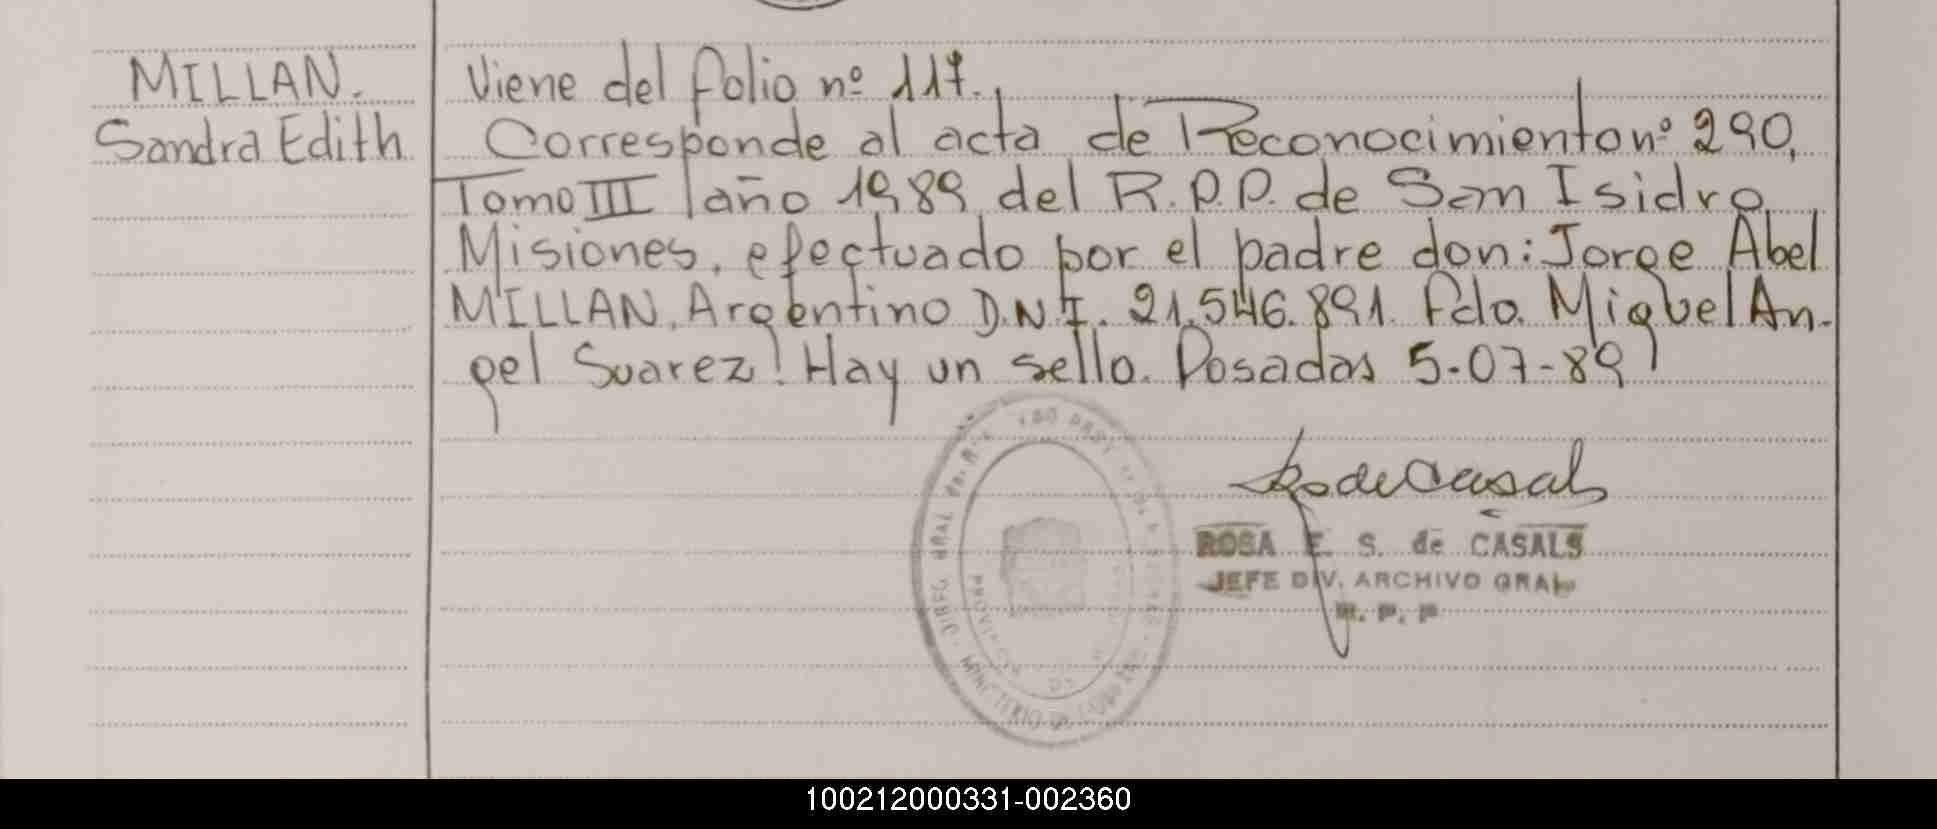 MILLAN.
Sandra Edith
Viene del folio nº 117.
Corresponde al acta de Reconocimiento nº 290,
Tomo III año 1989 del R.P.P. de San Isidro
Misiones, efectuado por el padre don: Jorge Abel
MILLAN, Argentino D.N.I. 21.546.891. Fdo. Miguel An-
gel Suarez! Hay un sello. Posadas 5-07-89
ROSA E. S. de CASALS
JEFE DIV. ARCHIVO GRAL
R. P. P
100212000331-002360